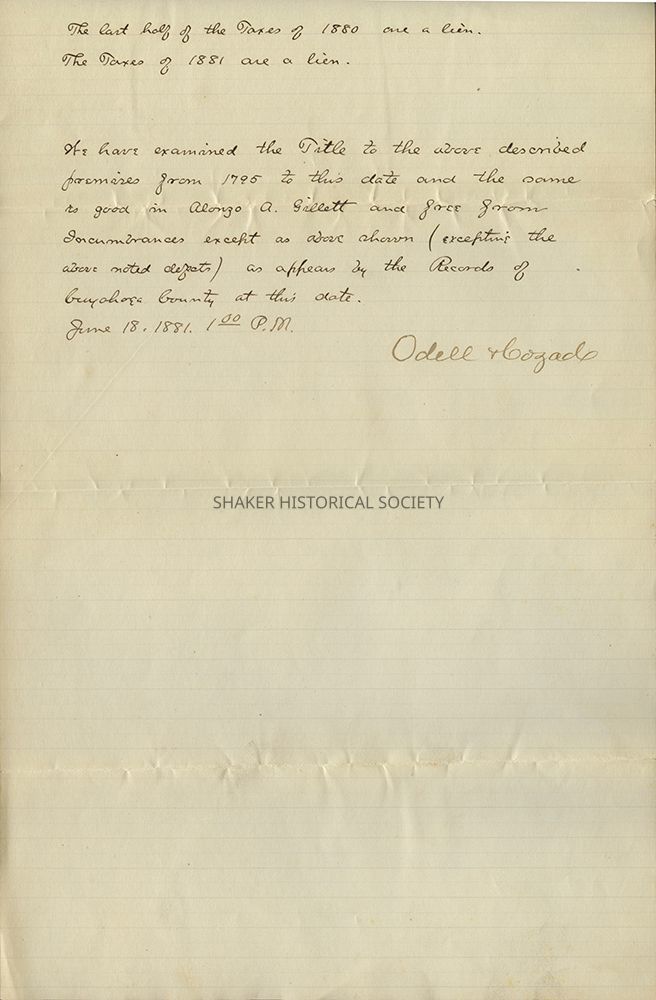 The last half of the Taxes of 1880 are a lien.
The Taxes of 1881 are a lien.
We have examined the Title to the above described
premises from 1795 to this date and the same
is good in Alonzo A. Gillett and free from
Incumbrances except as above shown (excepting the
above noted defects) as appears by the Records of
Cuyahoga County at this date.
June 18. 1881. 1 00 P.M.
Odell & Cozad
SHAKER HISTORICAL SOCIETY